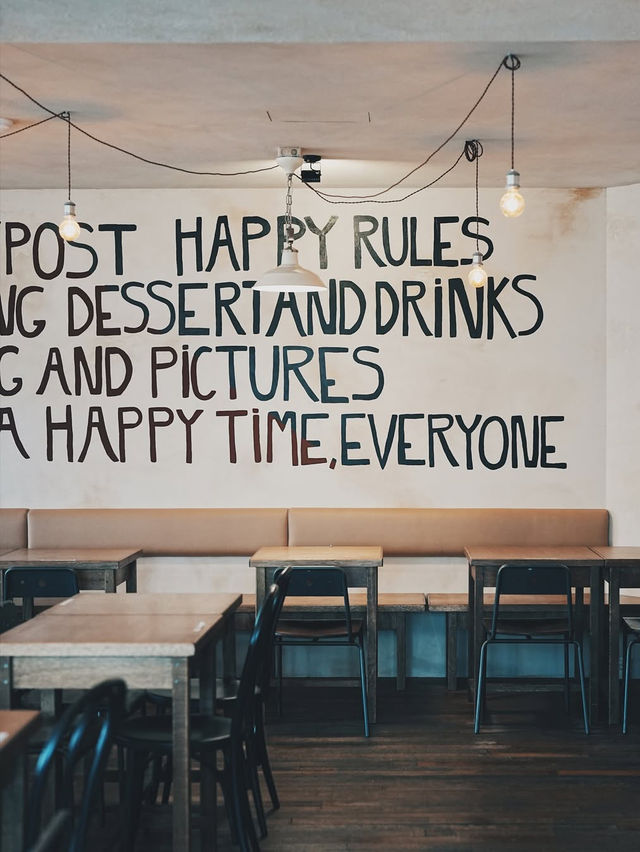 POST HAPPY RULES
NG DESSERT AND DRiNKS
G AND PiCTURES
A HAPPY TiME, EVERYONE